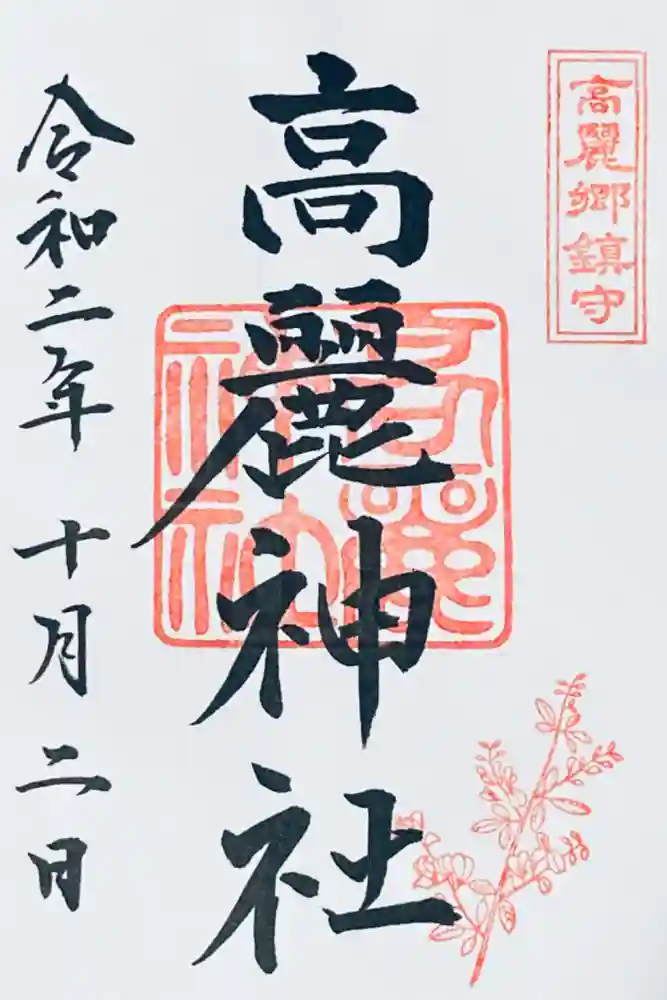 高麗郷鎮守
高麗神社
令和二年 十月 二日